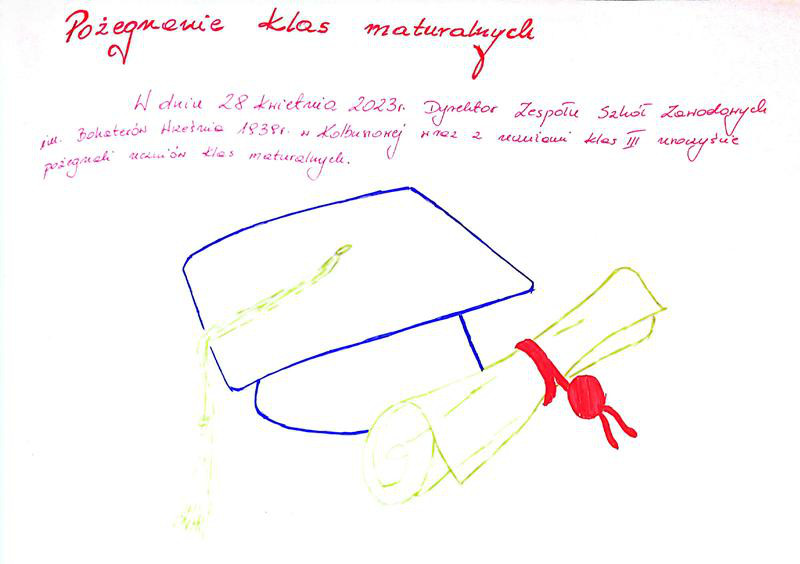 Pożegnanie klas maturalnych
W dniu 28 kwietnia 2023r. Dyrektor Zespołu Szkół Zawodowych
im. Bohaterów Września 1939r. w Kolbuszowej wraz z uczniami klas III uroczyście
pożegnali uczniów klas maturalnych.